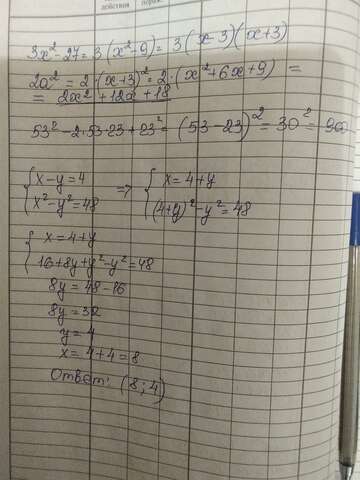 действия
3x² - 27 = 3(x² - 9) = 3(x - 3)(x + 3)
2a² = 2·(x+3)² = 2·(x² + 6x + 9) =
= 2x² + 12x + 18
53² - 2·53·23 + 23² = (53 - 23)² = 30² = 900
{ x - y = 4 => { x = 4 + y
{ x² - y² = 48 { (4+y)² - y² = 48
{ x = 4 + y
{ 16 + 8y + y² - y² = 48
8y = 48 - 16
8y = 32
y = 4
x = 4 + 4 = 8
Ответ: (8; 4)